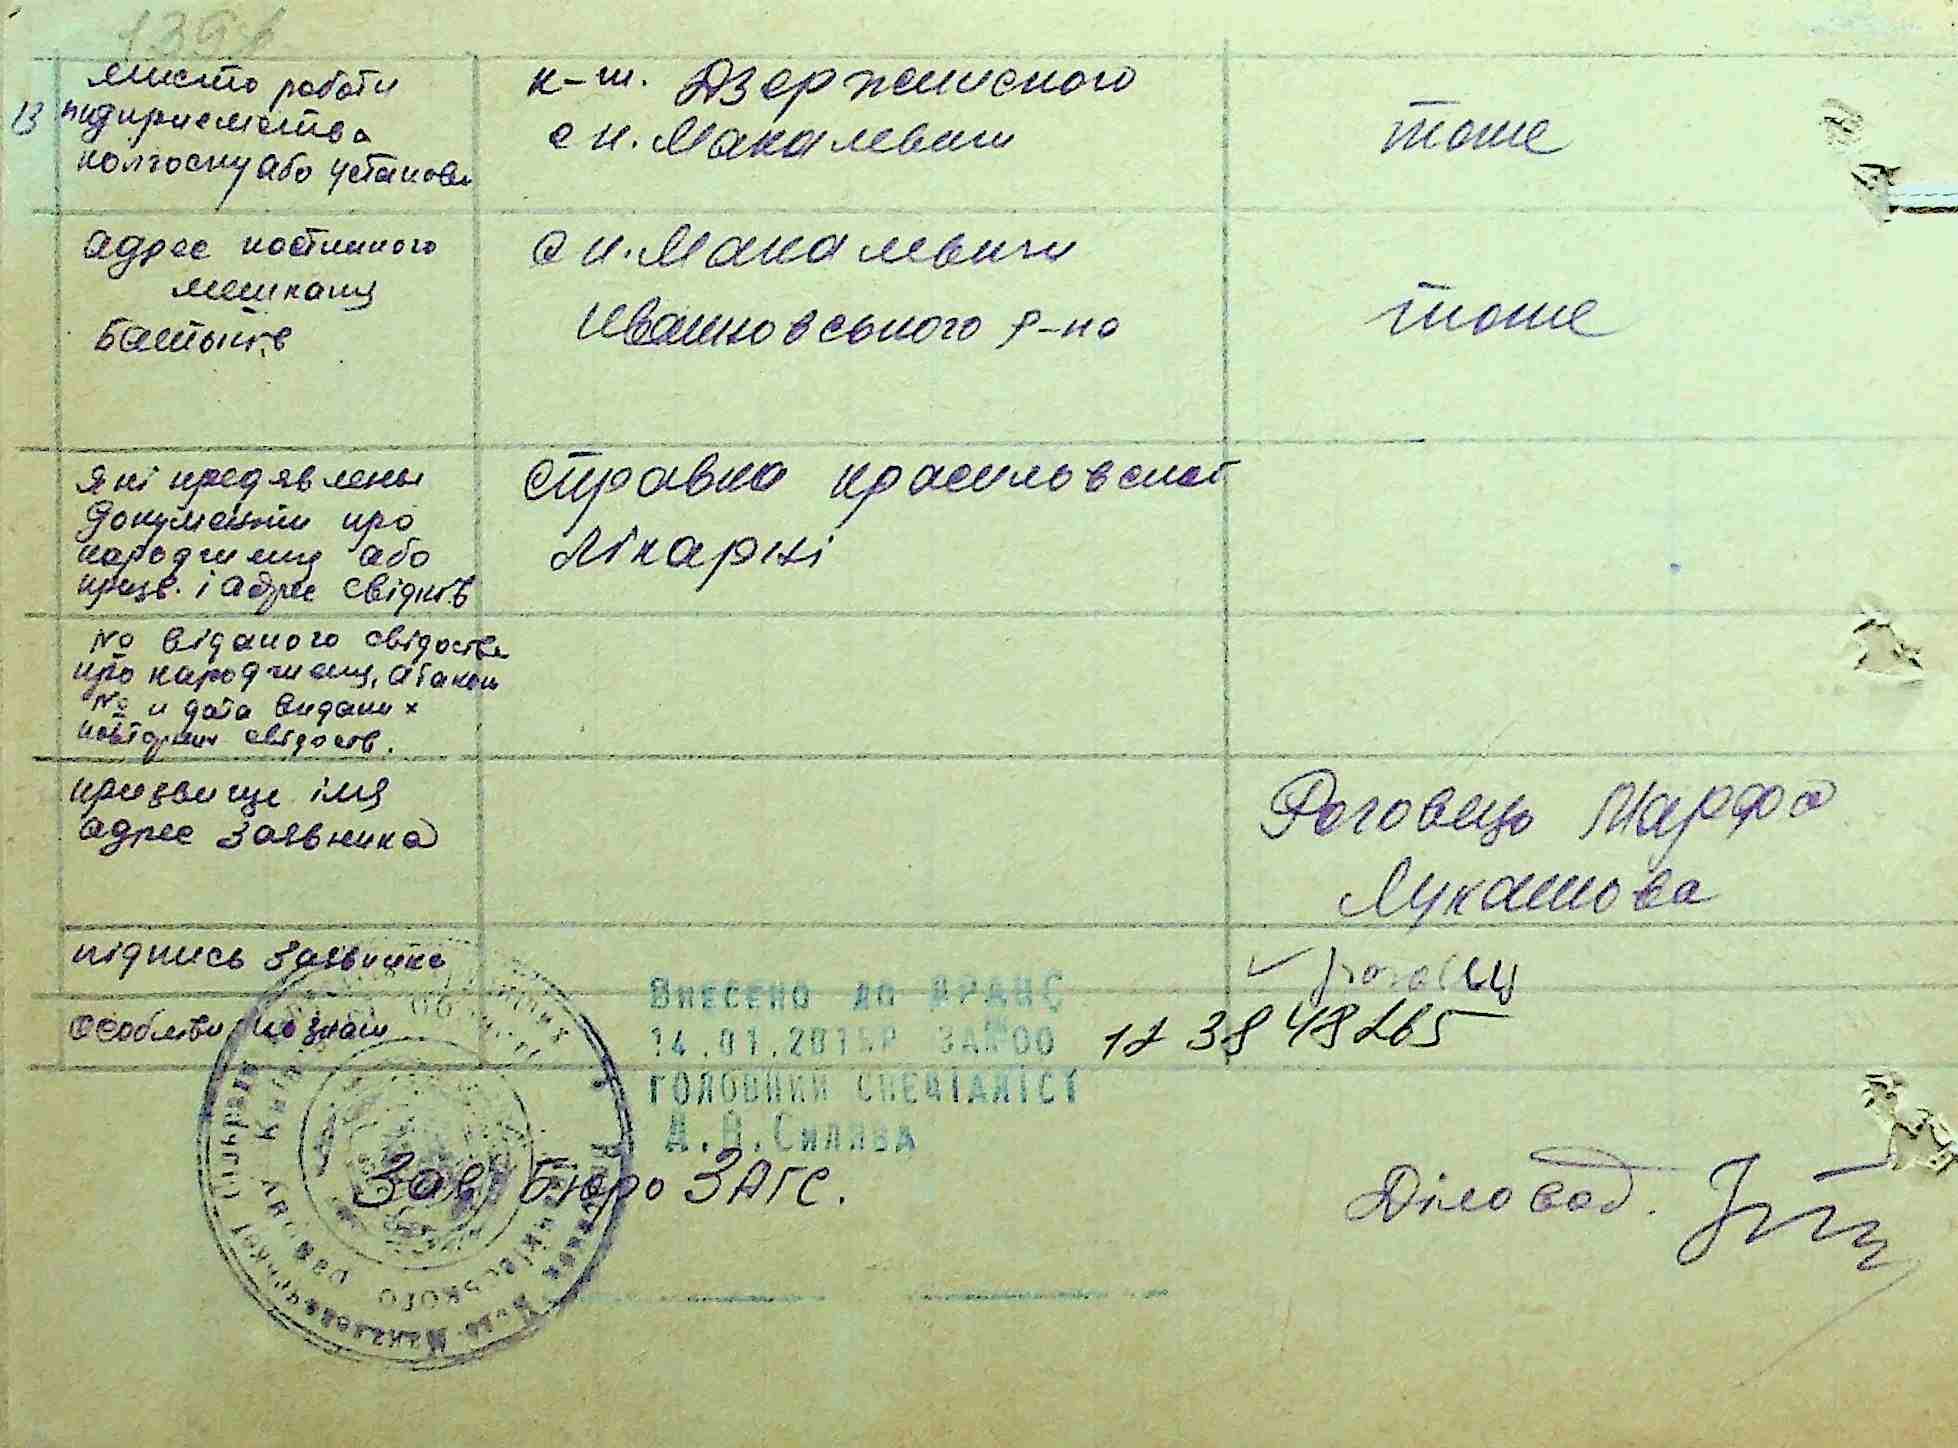 139
13
Мисто роботи
підприемства
колгоспу або установи
к-т. Дзержинского
с н. Макалевичи
тоже
адрес постийного
мешканця
Батькив
с н. Макалевичи
Иванковського р-на
тоже
Які предявлены
документи про
народження або
призв. і адрес свідків
Справка красиловскої
лікарні
№ віданого свідоства
про народження, а також
№ и дата видани х
повторних свідоств.
призвище імя
адрес заявника
Роговець Марфа
Лукашова
підпись заявника
✓ Роговец
Особливи познаки
Внесено до ДРАЦС
ЗА №00
12 3848265
ГОЛОВНИЙ СПЕЦІАЛІСТ
Зав. Бюро ЗАГС.
Діловод.